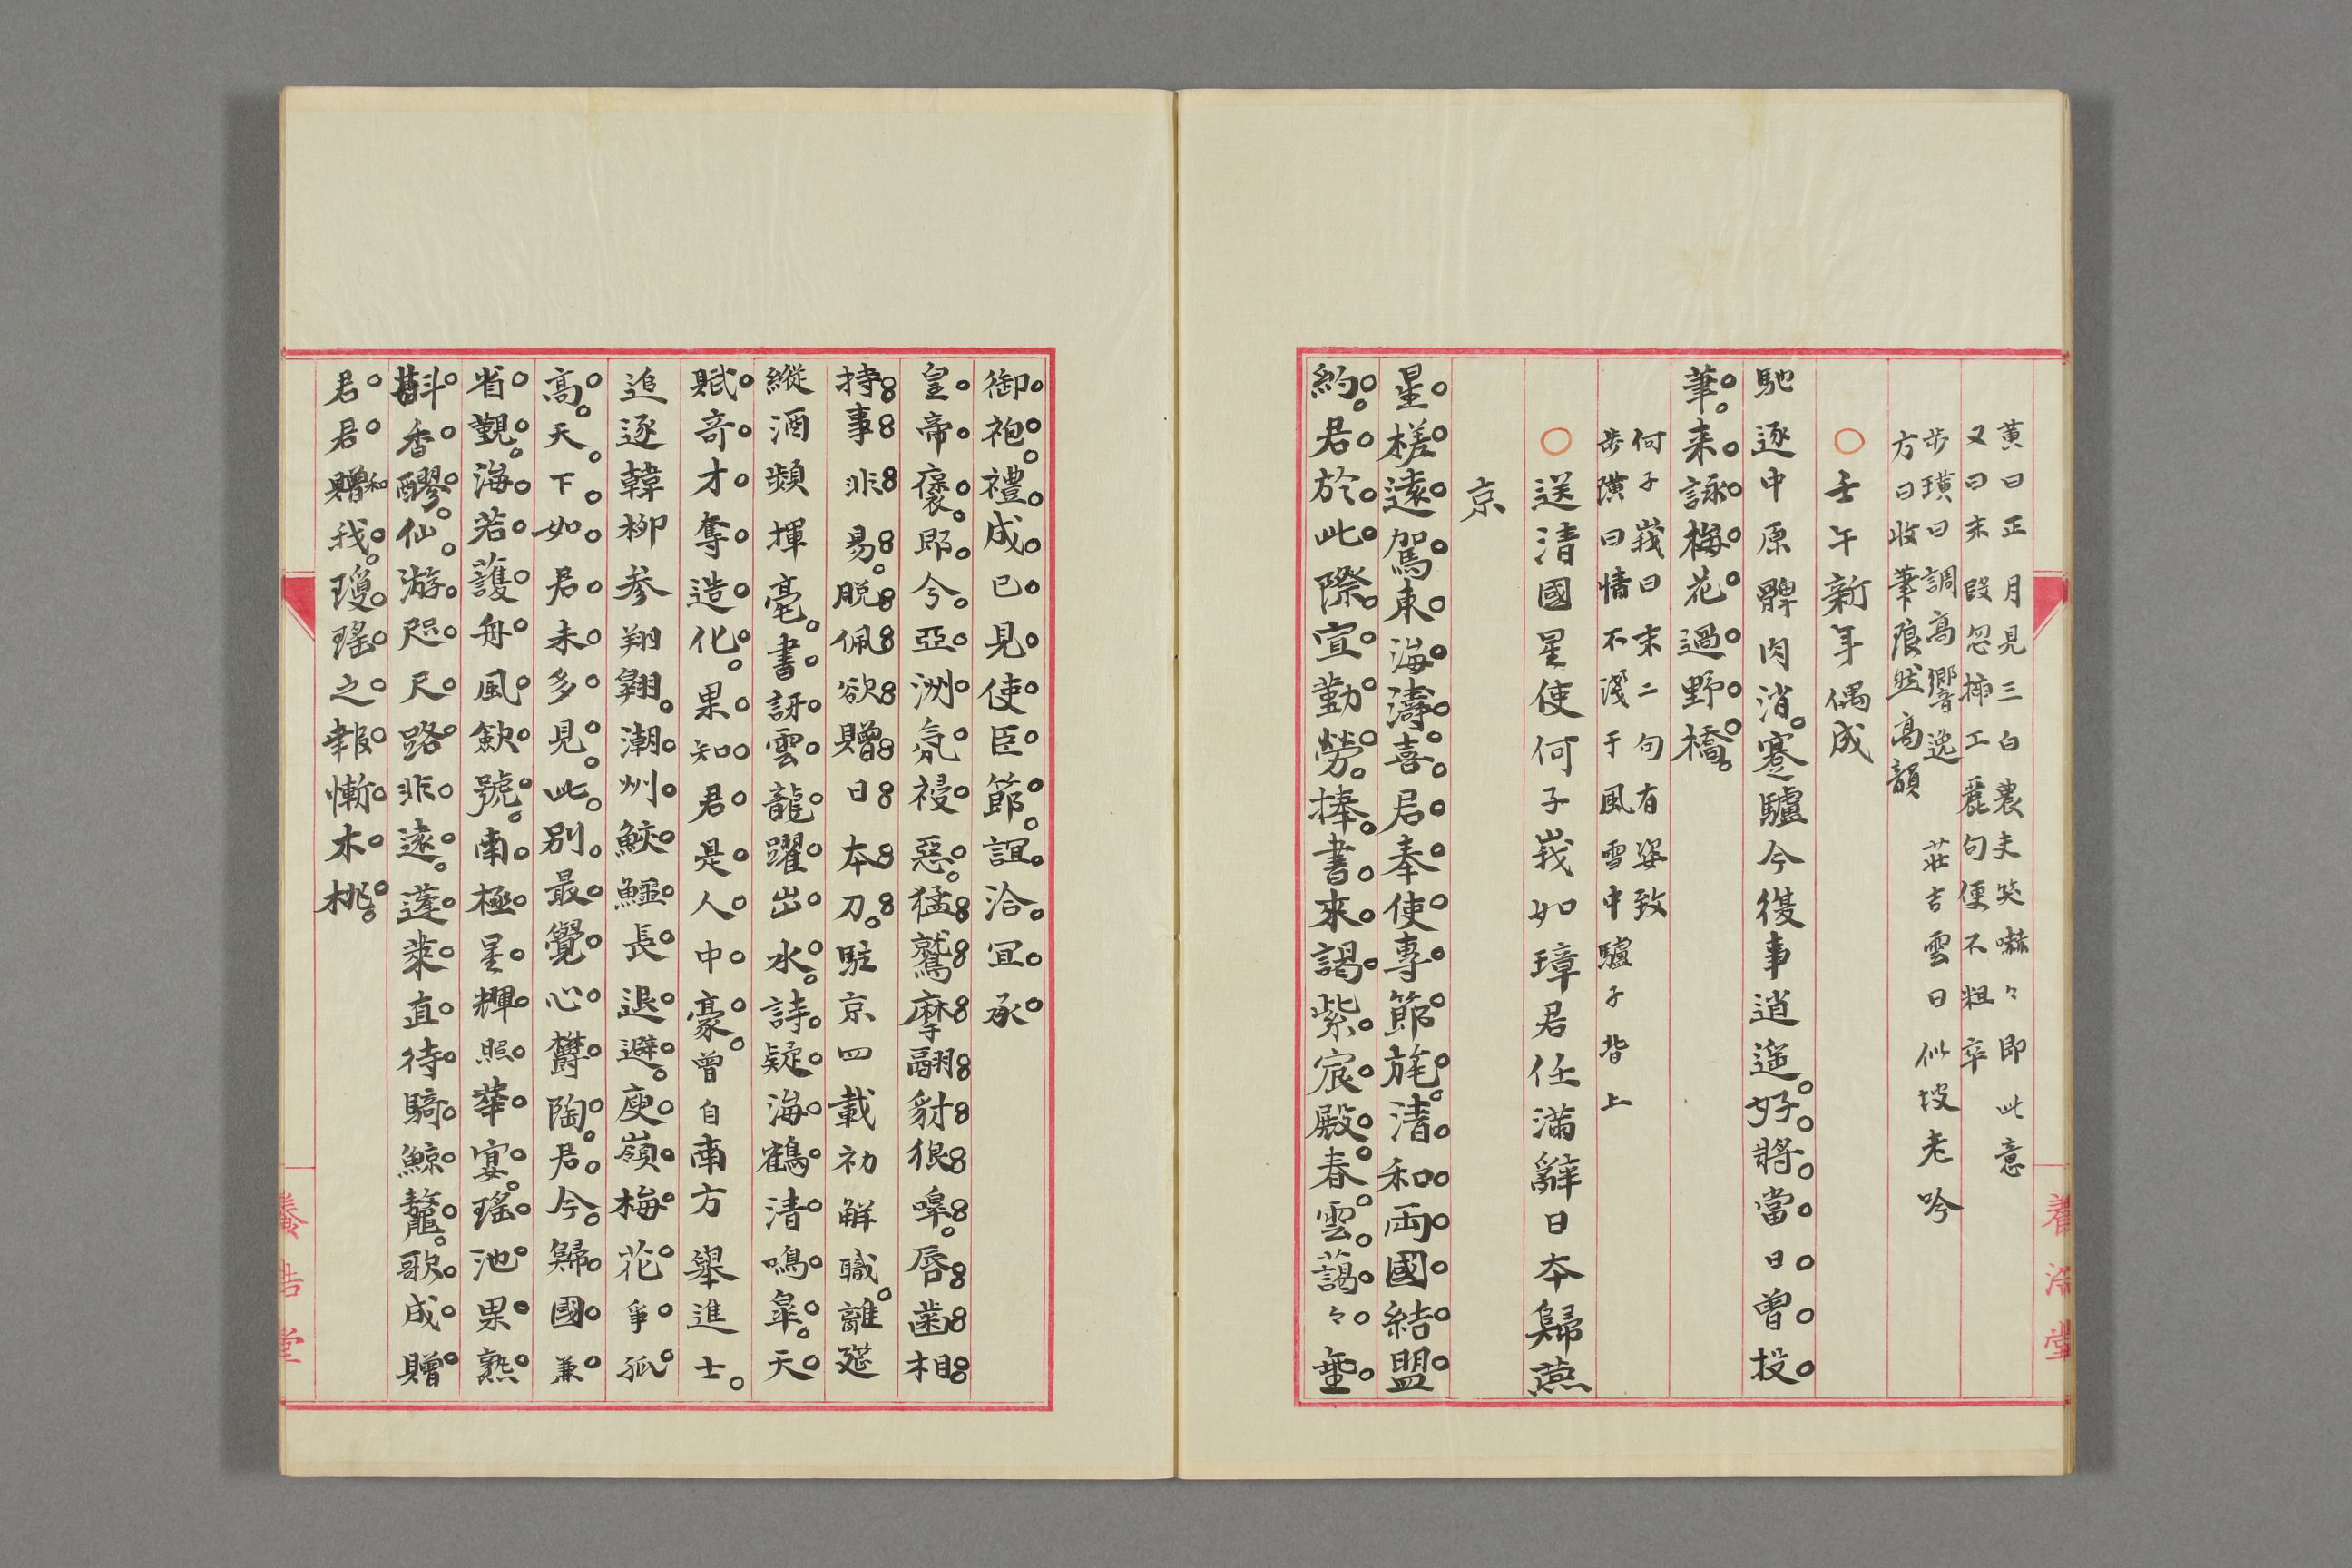 黄曰正月見三白農夫笑嚇々即此意
又曰末段忽插工麗句便不粗卒
步璜曰調高響逸　莊吉雲曰似坡老吟
方曰收筆隕然高韻
○壬午新年偶成
馳逐中原髀肉消。蹇驢今復事逍遥。好將當日曾投
筆。来詠梅花過野橋。
何子峩曰末二句有姿致
步璜曰情不淺于風雪中驢子背上
○送清國星使何子峩如璋君任満辭日本歸燕
京
星槎遠駕東海濤。喜君奉使專節旄。清和両國結盟
約。君於此際宣勤勞。捧書来謁紫宸殿。春雲藹々垂
御袍。禮成已見使臣節。誼洽宜承
皇帝褒。即今亞洲氛祲惡。猛鷲摩翮豺狠嘷。唇歯相
持事非易。脱佩欲贈日本刀。駐京四載初解職。離筵
縱酒頻揮毫。書訝雲龍躍出水。詩疑海鶴清鳴皐。天
賦竒才奪造化。果知君是人中豪。曽自南方舉進士。
追逐韓柳参翔翺。潮州鮫鱷長退避。庾嶺梅花爭孤
高。天下如君未多見。此别最覺心欝陶。君今歸國兼
省覲。海若護舟風歛號。南極星輝照華宴。瑶池果熟
斟香醪。仙游咫尺路非遠。蓬萊直待騎鯨鼇。歌成贈
君君和贈我。瓊瑤之報慚木桃。
養浩堂
養浩堂